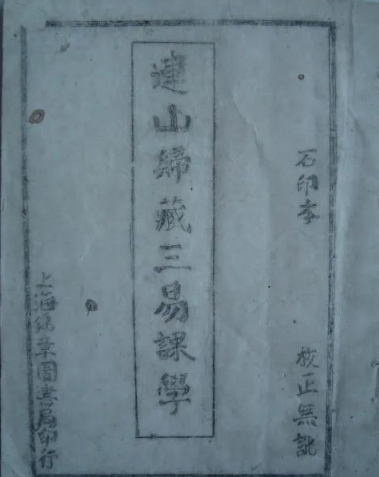 石印本
校正無訛
連山歸藏三易課學
上海鴻章圖書局印行